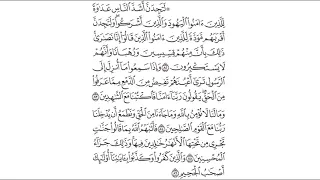 لَتَجِدَنَّ أَشَدَّ النَّاسِ عَدَاوَةً
لِّلَّذِينَ ءَامَنُوا الْيَهُودَ وَالَّذِينَ أَشْرَكُوا وَلَتَجِدَنَّ
أَقْرَبَهُم مَّوَدَّةً لِّلَّذِينَ ءَامَنُوا الَّذِينَ قَالُوا إِنَّا نَصَارَىٰ
ذَٰلِكَ بِأَنَّ مِنْهُمْ قِسِّيسِينَ وَرُهْبَانًا وَأَنَّهُمْ
لَا يَسْتَكْبِرُونَ وَإِذَا سَمِعُوا مَا أُنزِلَ إِلَى
الرَّسُولِ تَرَىٰ أَعْيُنَهُمْ تَفِيضُ مِنَ الدَّمْعِ مِمَّا عَرَفُوا
مِنَ الْحَقِّ يَقُولُونَ رَبَّنَا ءَامَنَّا فَاكْتُبْنَا مَعَ الشَّاهِدِينَ
وَمَا لَنَا لَا نُؤْمِنُ بِاللَّهِ وَمَا جَاءَنَا مِنَ الْحَقِّ وَنَطْمَعُ أَن يُدْخِلَنَا
رَبُّنَا مَعَ الْقَوْمِ الصَّالِحِينَ فَأَثَابَهُمُ اللَّهُ بِمَا قَالُوا جَنَّاتٍ
تَجْرِي مِن تَحْتِهَا الْأَنْهَارُ خَالِدِينَ فِيهَا وَذَٰلِكَ جَزَاءُ
الْمُحْسِنِينَ وَالَّذِينَ كَفَرُوا وَكَذَّبُوا بِآيَاتِنَا أُولَٰئِكَ
أَصْحَابُ الْجَحِيمِ